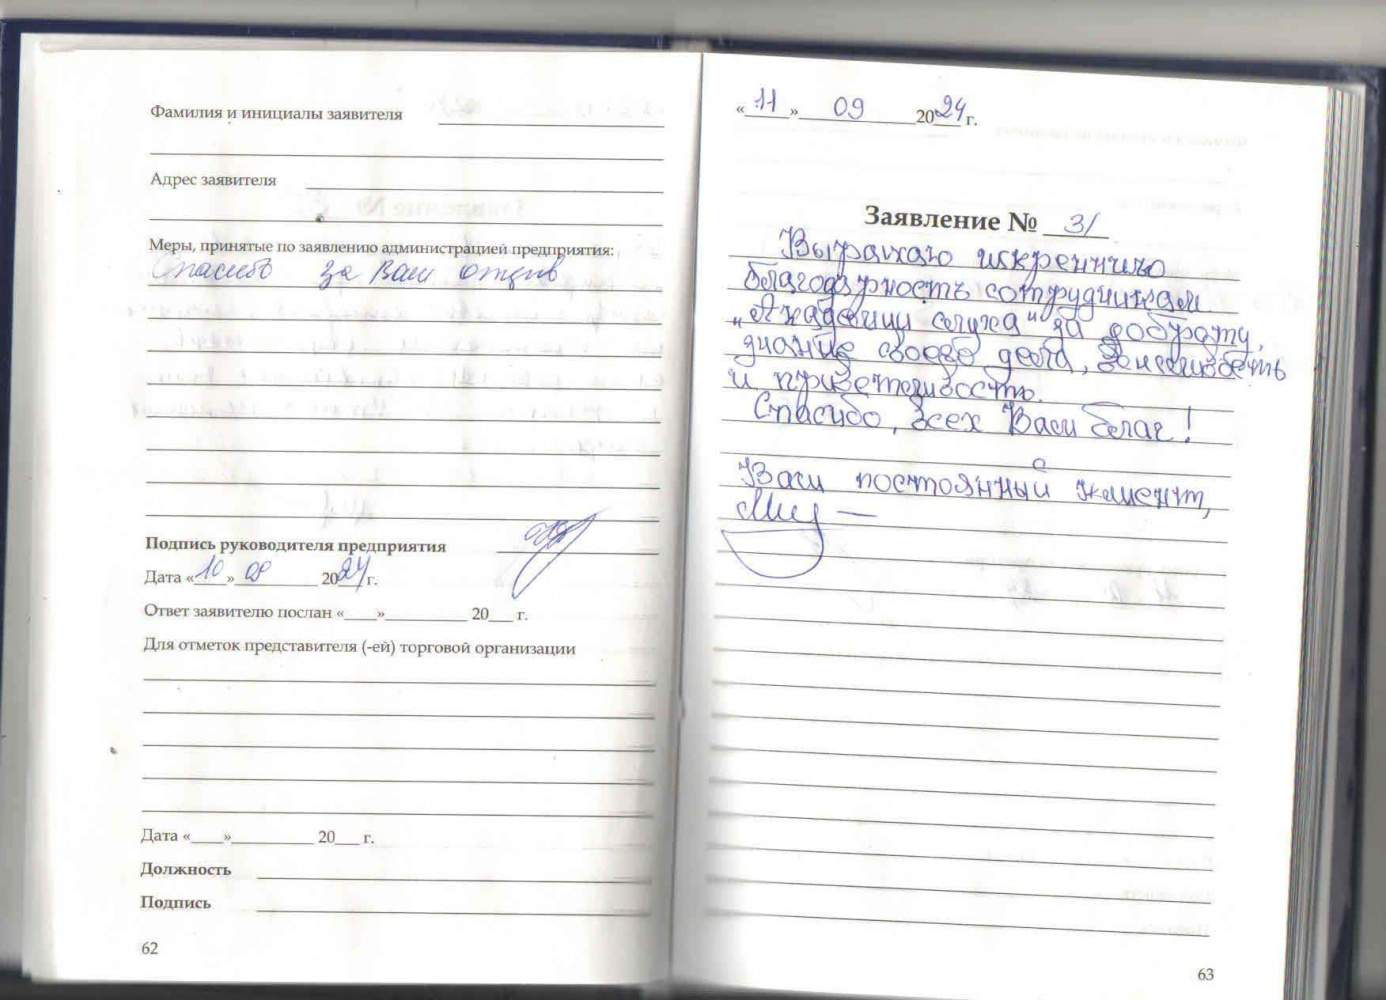 Фамилия и инициалы заявителя
Адрес заявителя
Меры, принятые по заявлению администрацией предприятия:
Спасибо за Ваш отзыв
Подпись руководителя предприятия
Дата «10» 09 2024 г.
Ответ заявителю послан «___»_________ 20___ г.
Для отметок представителя (-ей) торговой организации
Дата «___»_________ 20___ г.
Должность
Подпись
62
«11» 09 2024 г.
Заявление № 31
Выражаю искреннюю
благодарность сотрудникам
„Академии слуха" за доброту,
знание своего дела,
и приветливость.
Спасибо, всех Вам благ!
Ваш постоянный клиент,
63